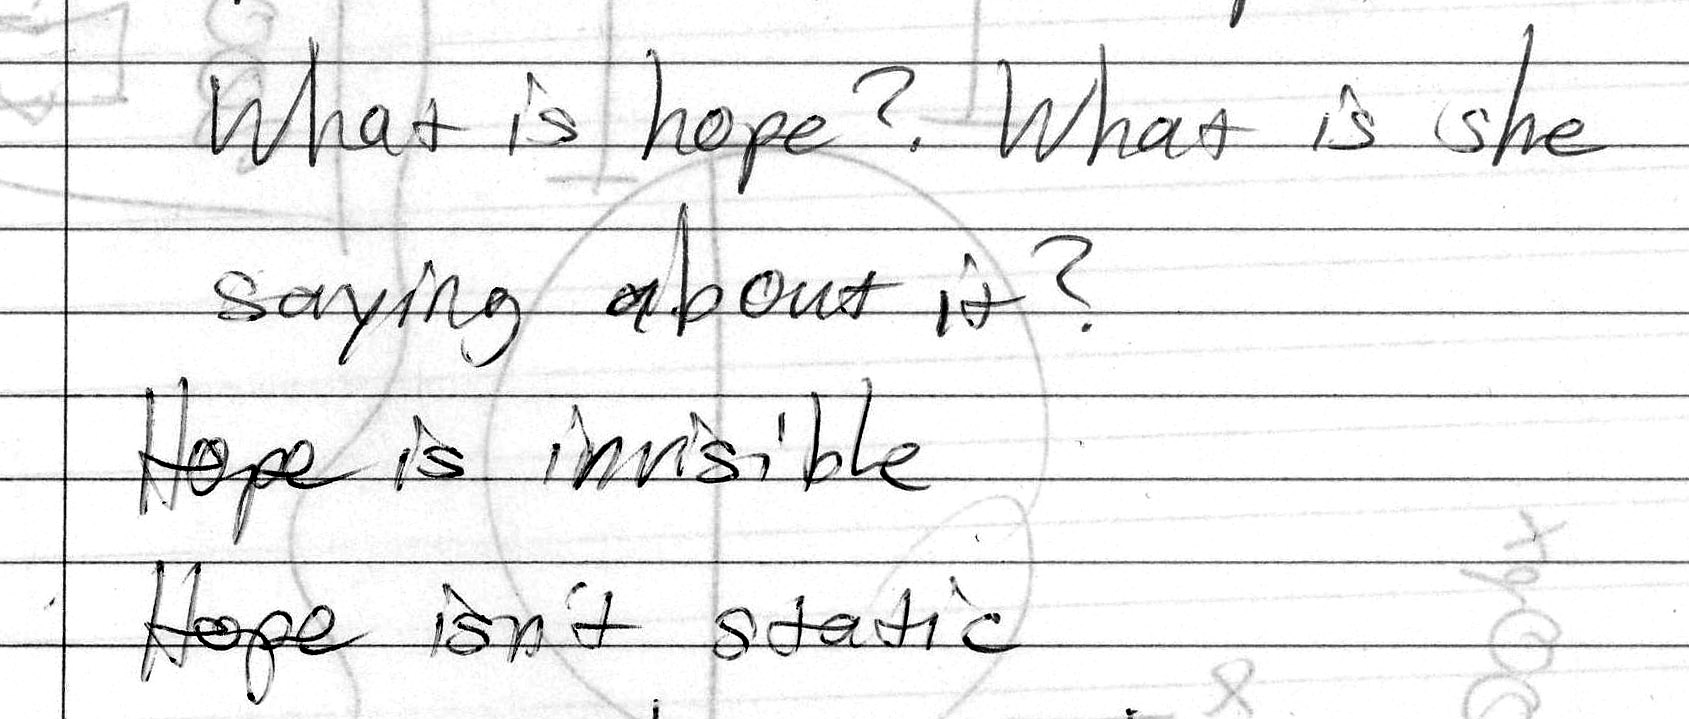 What is hope? What is she
saying about it?
Hope is invisible
Hope isn't static